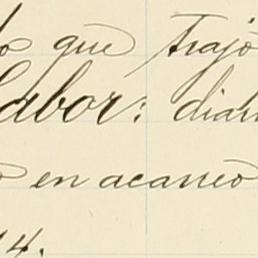 lo que trajo
Labor: diari
o en acarreo
14.